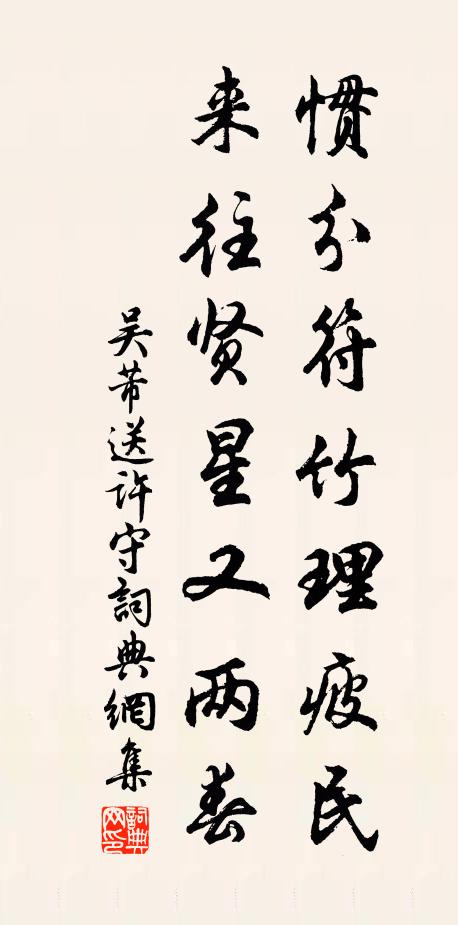 惯分符竹理疲民
来往贤星又两春
吴芾送许守詞典網集
詞典网印